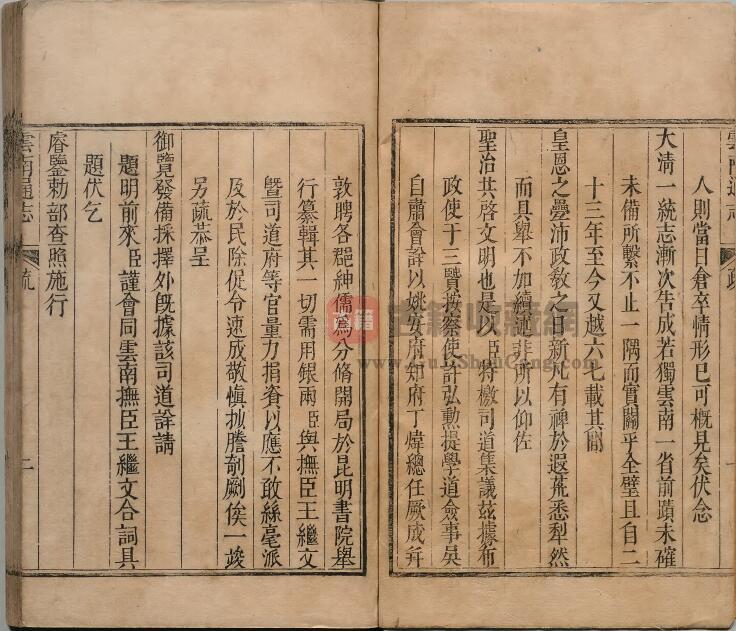 人則當日倉卒情形已可概見矣伏念
大淸一統志漸次告成若獨雲南一省前蹟未確
未備所繫不止一隅而實關乎全璧且自二
十三年至今又越六七載其間
皇恩之疊沛政敎之日新凡有禆於遐荒悉犁然
而具舉不加續述非所以仰佐
聖治共啓文明也是以臣特檄司道集議玆據布
政使于三賢按察使許弘勲提學道僉事吳
自肅會詳以姚安府知府丁煒總任厥成并
敦聘各郡紳儒爲分脩開局於昆明書院舉
行纂輯其一切需用銀兩臣與撫臣王繼文
暨司道府等官量力捐資以應不敢絲毫派
及於民除促令速成敬愼抛謄剞劂俟一竣
另疏恭呈
御覽發備採擇外旣據該司道詳請
題明前來臣謹會同雲南撫臣王繼文合詞具
題伏乞
睿鑒勅部查照施行
雲南通志
疏
二
古籍
古籍收藏網
www.GuJiShouCang.com